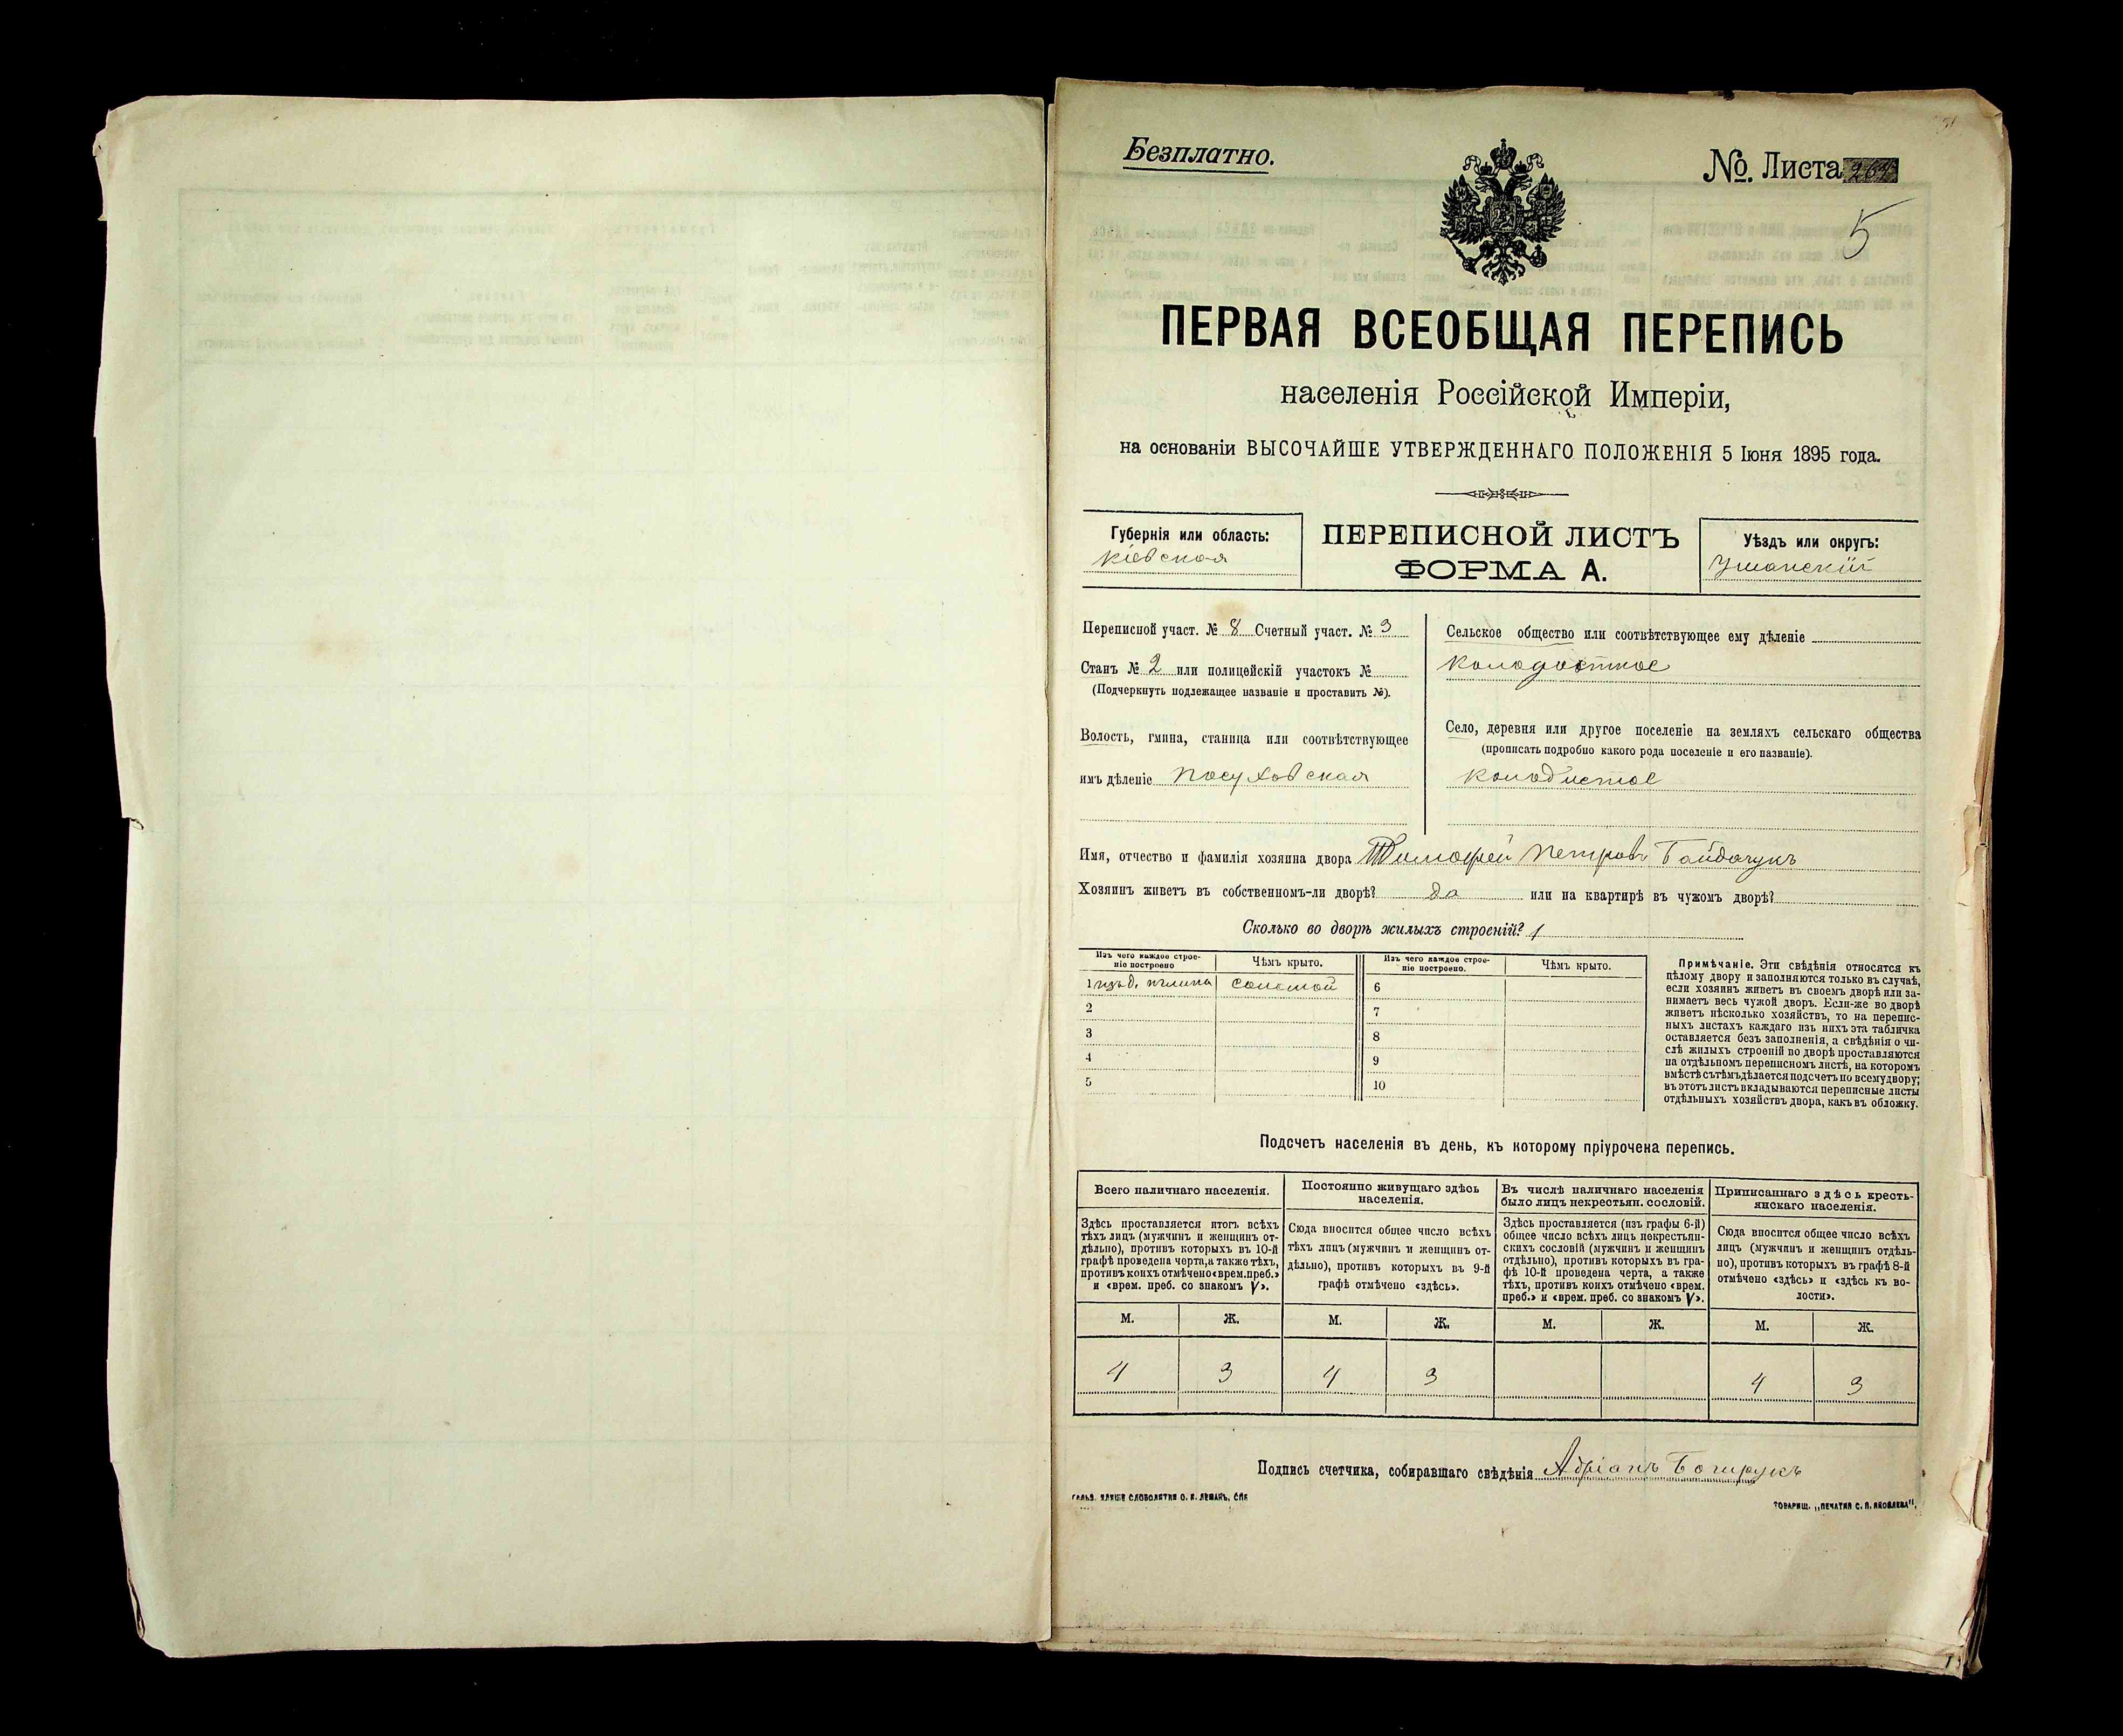 Безплатно.
№. Листа
5
ПЕРВАЯ ВСЕОБЩАЯ ПЕРЕПИСЬ
населенія Россійской Имперіи,
на основаніи ВЫСОЧАЙШЕ УТВЕРЖДЕННАГО ПОЛОЖЕНІЯ 5 Іюня 1895 года.
Губернія или область:
Кіевская
ПЕРЕПИСНОЙ ЛИСТЪ
ФОРМА А.
Уѣздъ или округъ:
Уманскій
Переписной участ. № 8 Счетный участ. № 3
Станъ № 2 или полицейскій участокъ №
(Подчеркнуть подлежащее названіе и проставить №).
Волость, гмина, станица или соотвѣтствующее
имъ дѣленіе Посуховская
Сельское общество или соотвѣтствующее ему дѣленіе
Село, деревня или другое поселеніе на земляхъ сельскаго общества
(прописать подробно какого рода поселеніе и его названіе).
Колодистое
Имя, отчество и фамилія хозяина двора Тимофей Петровъ Байдачукъ
Хозяинъ живетъ въ собственномъ-ли дворѣ? да или на квартирѣ въ чужомъ дворѣ?
Сколько во дворѣ жилыхъ строеній? 1
Изъ чего каждое строе-
ніе построено
Чѣмъ крыто.
Изъ чего каждое строе-
ніе построено.
Чѣмъ крыто.
1 соломой 6
2 7
3 8
4 9
5 10
Примѣчаніе. Эти свѣдѣнія относятся къ
цѣлому двору и заполняются только въ случаѣ,
если хозяинъ живетъ въ своемъ дворѣ или за-
нимаетъ весь чужой дворъ. Если-же во дворѣ
живетъ нѣсколько хозяйствъ, то на перепис-
ныхъ листахъ каждаго изъ нихъ эта табличка
оставляется безъ заполненія, а свѣдѣнія о чи-
слѣ жилыхъ строеній во дворѣ проставляются
на отдѣльномъ переписномъ листѣ, на которомъ
вмѣстѣ съ тѣмъ дѣлается подсчетъ по всему двору;
въ этотъ листъ вкладываются переписные листы
отдѣльныхъ хозяйствъ двора, какъ въ обложку.
Подсчетъ населенія въ день, къ которому пріурочена перепись.
Всего наличнаго населенія.
Здѣсь проставляется итогъ всѣхъ
тѣхъ лицъ (мужчинъ и женщинъ от-
дѣльно), противъ которыхъ въ 10-й
графѣ проведена черта, а также тѣхъ,
противъ коихъ отмѣчено «врем. преб.»
и «врем. преб. со знакомъ V».
Постоянно живущаго здѣсь
населенія.
Сюда вносится общее число всѣхъ
тѣхъ лицъ (мужчинъ и женщинъ от-
дѣльно), противъ которыхъ въ 9-й
графѣ отмѣчено «здѣсь».
Въ числѣ наличнаго населенія
было лицъ некрестьян. сословій.
Здѣсь проставляется (изъ графы 6-й)
общее число всѣхъ лицъ некрестьян-
скихъ сословій (мужчинъ и женщинъ
отдѣльно), противъ которыхъ въ гра-
фѣ 10-й проведена черта, а также
тѣхъ, противъ коихъ отмѣчено «врем.
преб.» и «врем. преб. со знакомъ V».
Приписаннаго здѣсь кресть-
янскаго населенія.
Сюда вносится общее число всѣхъ
лицъ (мужчинъ и женщинъ отдѣль-
но), противъ которыхъ въ графѣ 8-й
отмѣчено «здѣсь» и «здѣсь къ во-
лости».
М. Ж. М. Ж. М. Ж. М. Ж.
4 3 4 3 4 3
Подпись счетчика, собиравшаго свѣдѣнія Адріанъ
ТОВАРИЩ. „ПЕЧАТНЯ С. П. ЯКОВЛЕВА".